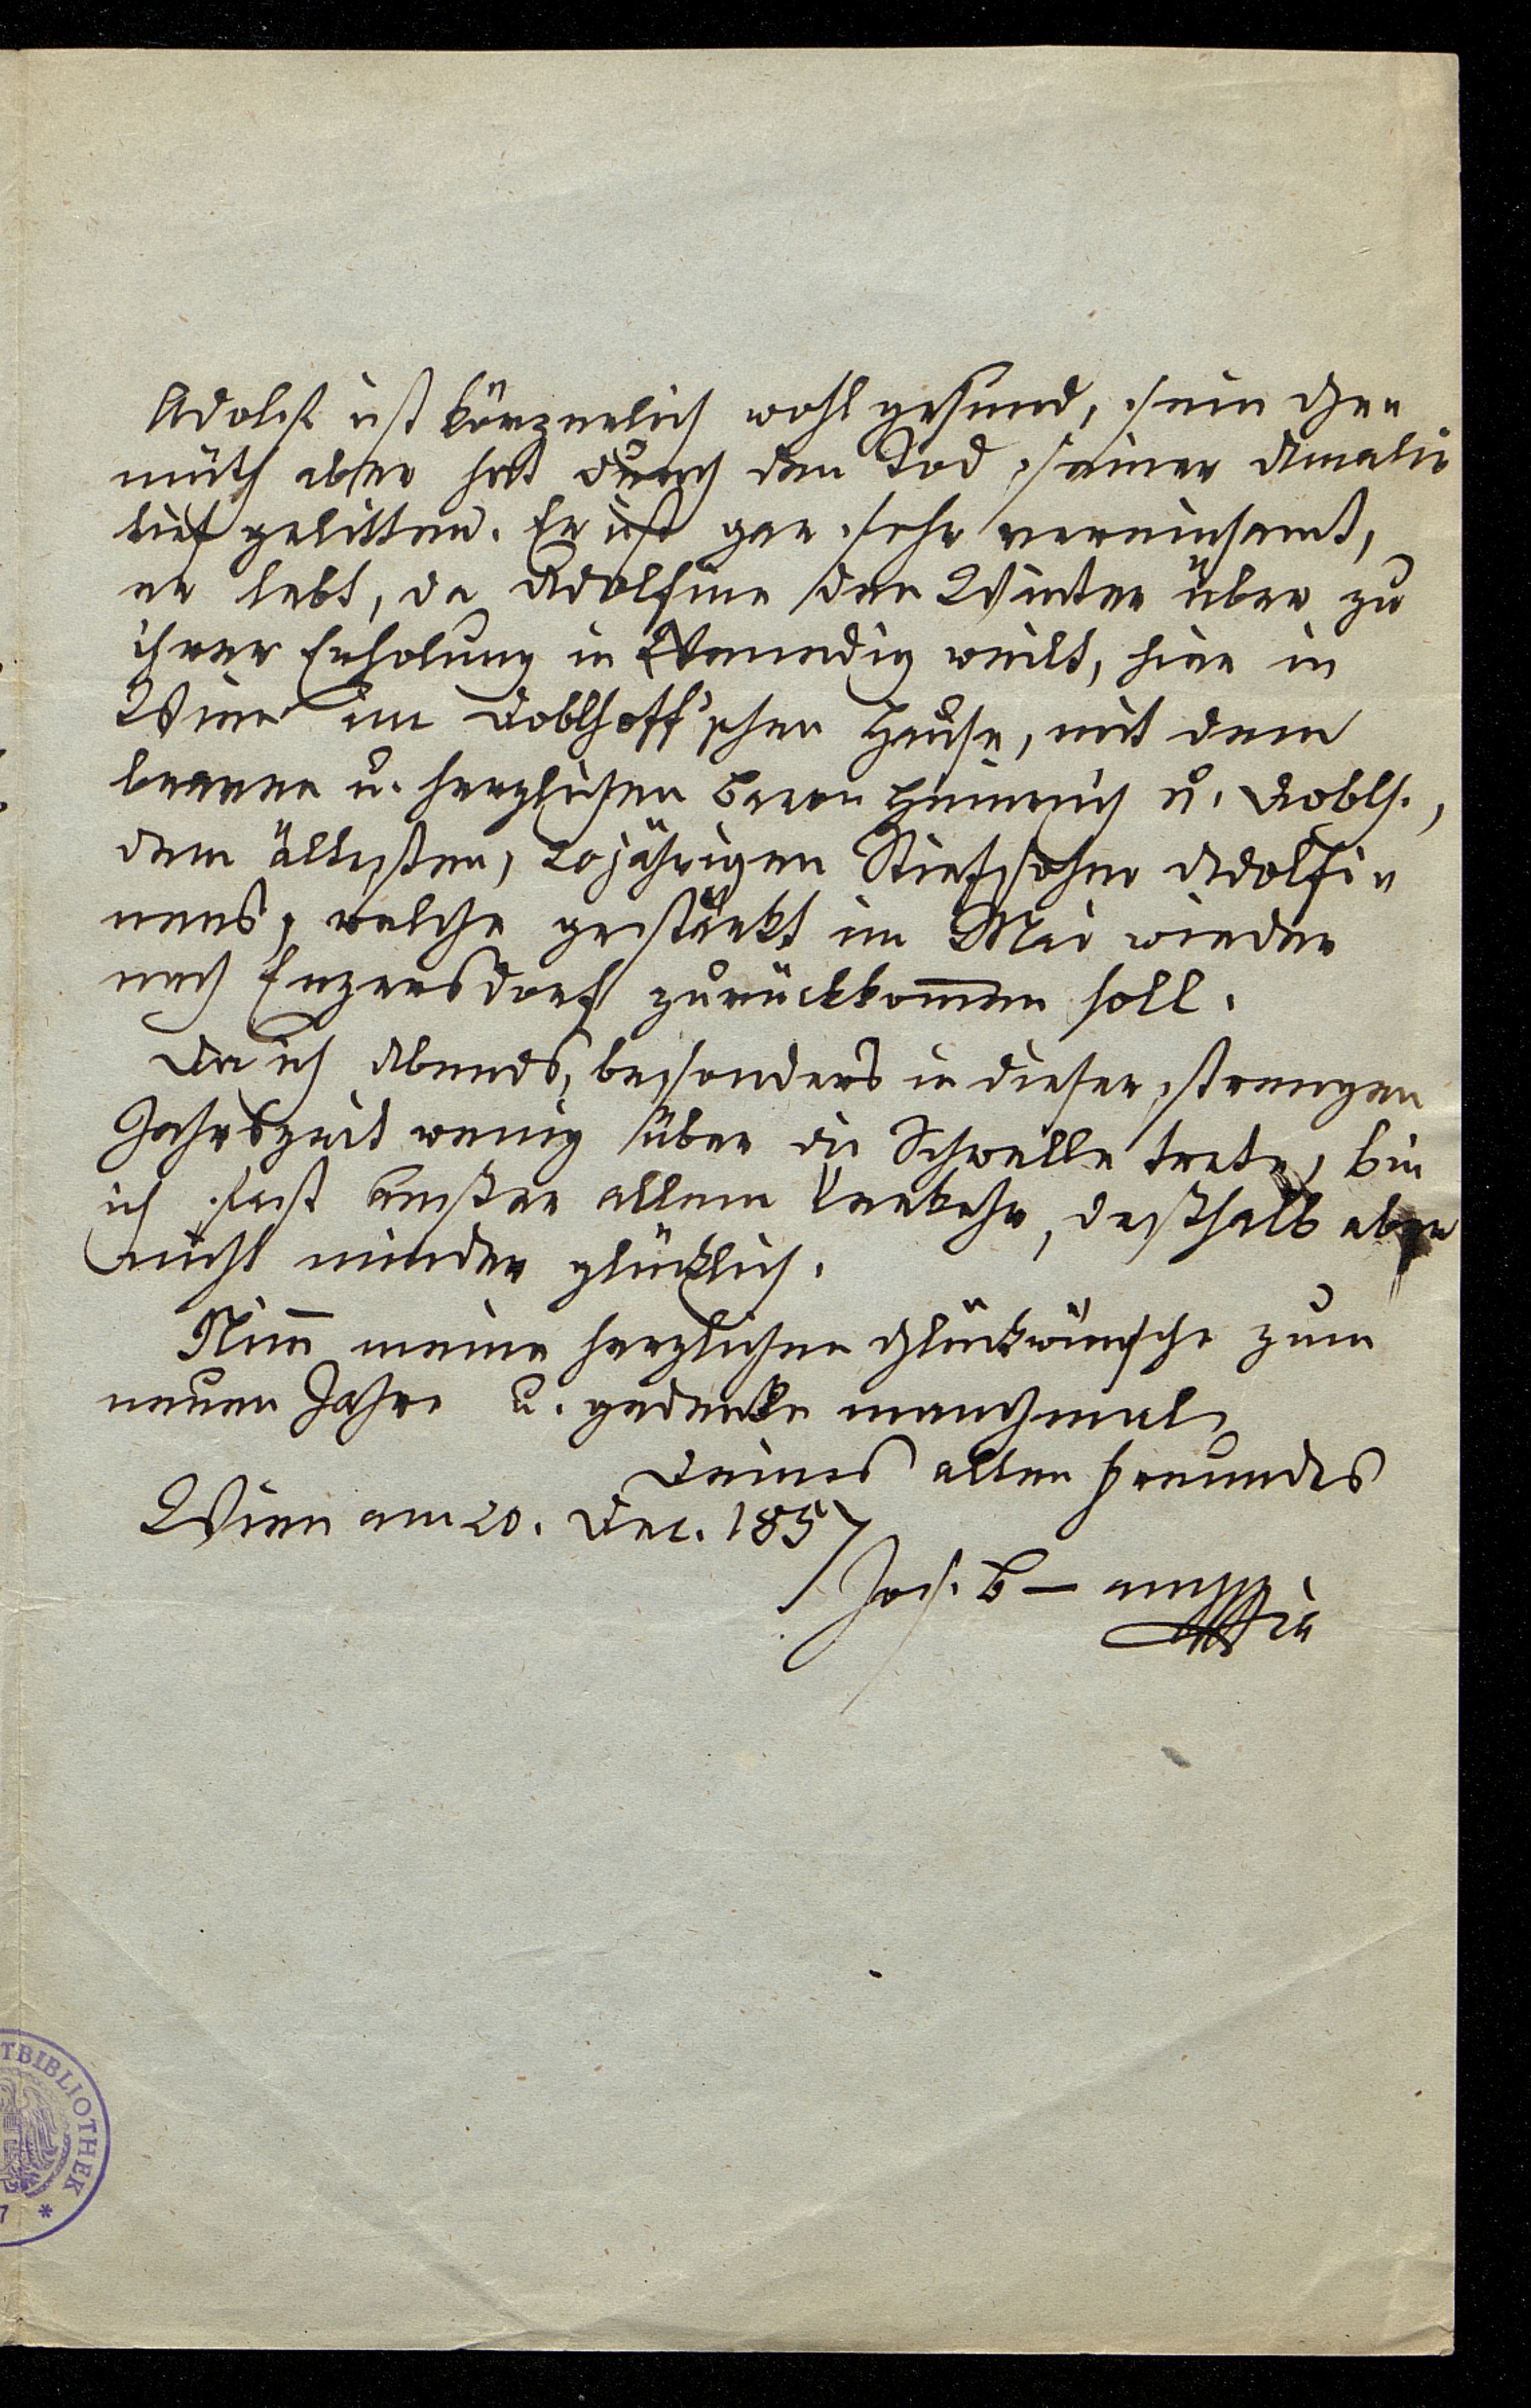 Adolf ist körperlich wohl gesund, sein Ge-
müth aber hat durch den Tod seiner Amalie
tief gelitten. Er ist gar sehr vereinsamt,
er lebt, da Adolfine den Winter über zu
ihrer Erholung in Venedig weilt, hier in
Wien im Doblhoff'schen Hause, mit dem
braven u. herzlichen Baron Heinrich v. Doblh.,
dem ältesten, 20jährigen Stiefsohne Adolfi-
nens, welche gestärkt im Mai wieder
nach Enzersdorf zurückkom̅en soll.
Da ich Abends, besonders in dieser strengen
Jahrszeit wenig über die Schwelle trete, bin
ich fast außer allem Verkehr, deßhalb aber
nicht minder glücklich.
Nim̅ meine herzlichen Glückwünsche zum
neuen Jahre u. gedenke manchmal
Deines alten Freundes
Wien am 20. Dec. 1857
Jos. B–
TBIBLIOTHEK
7 *